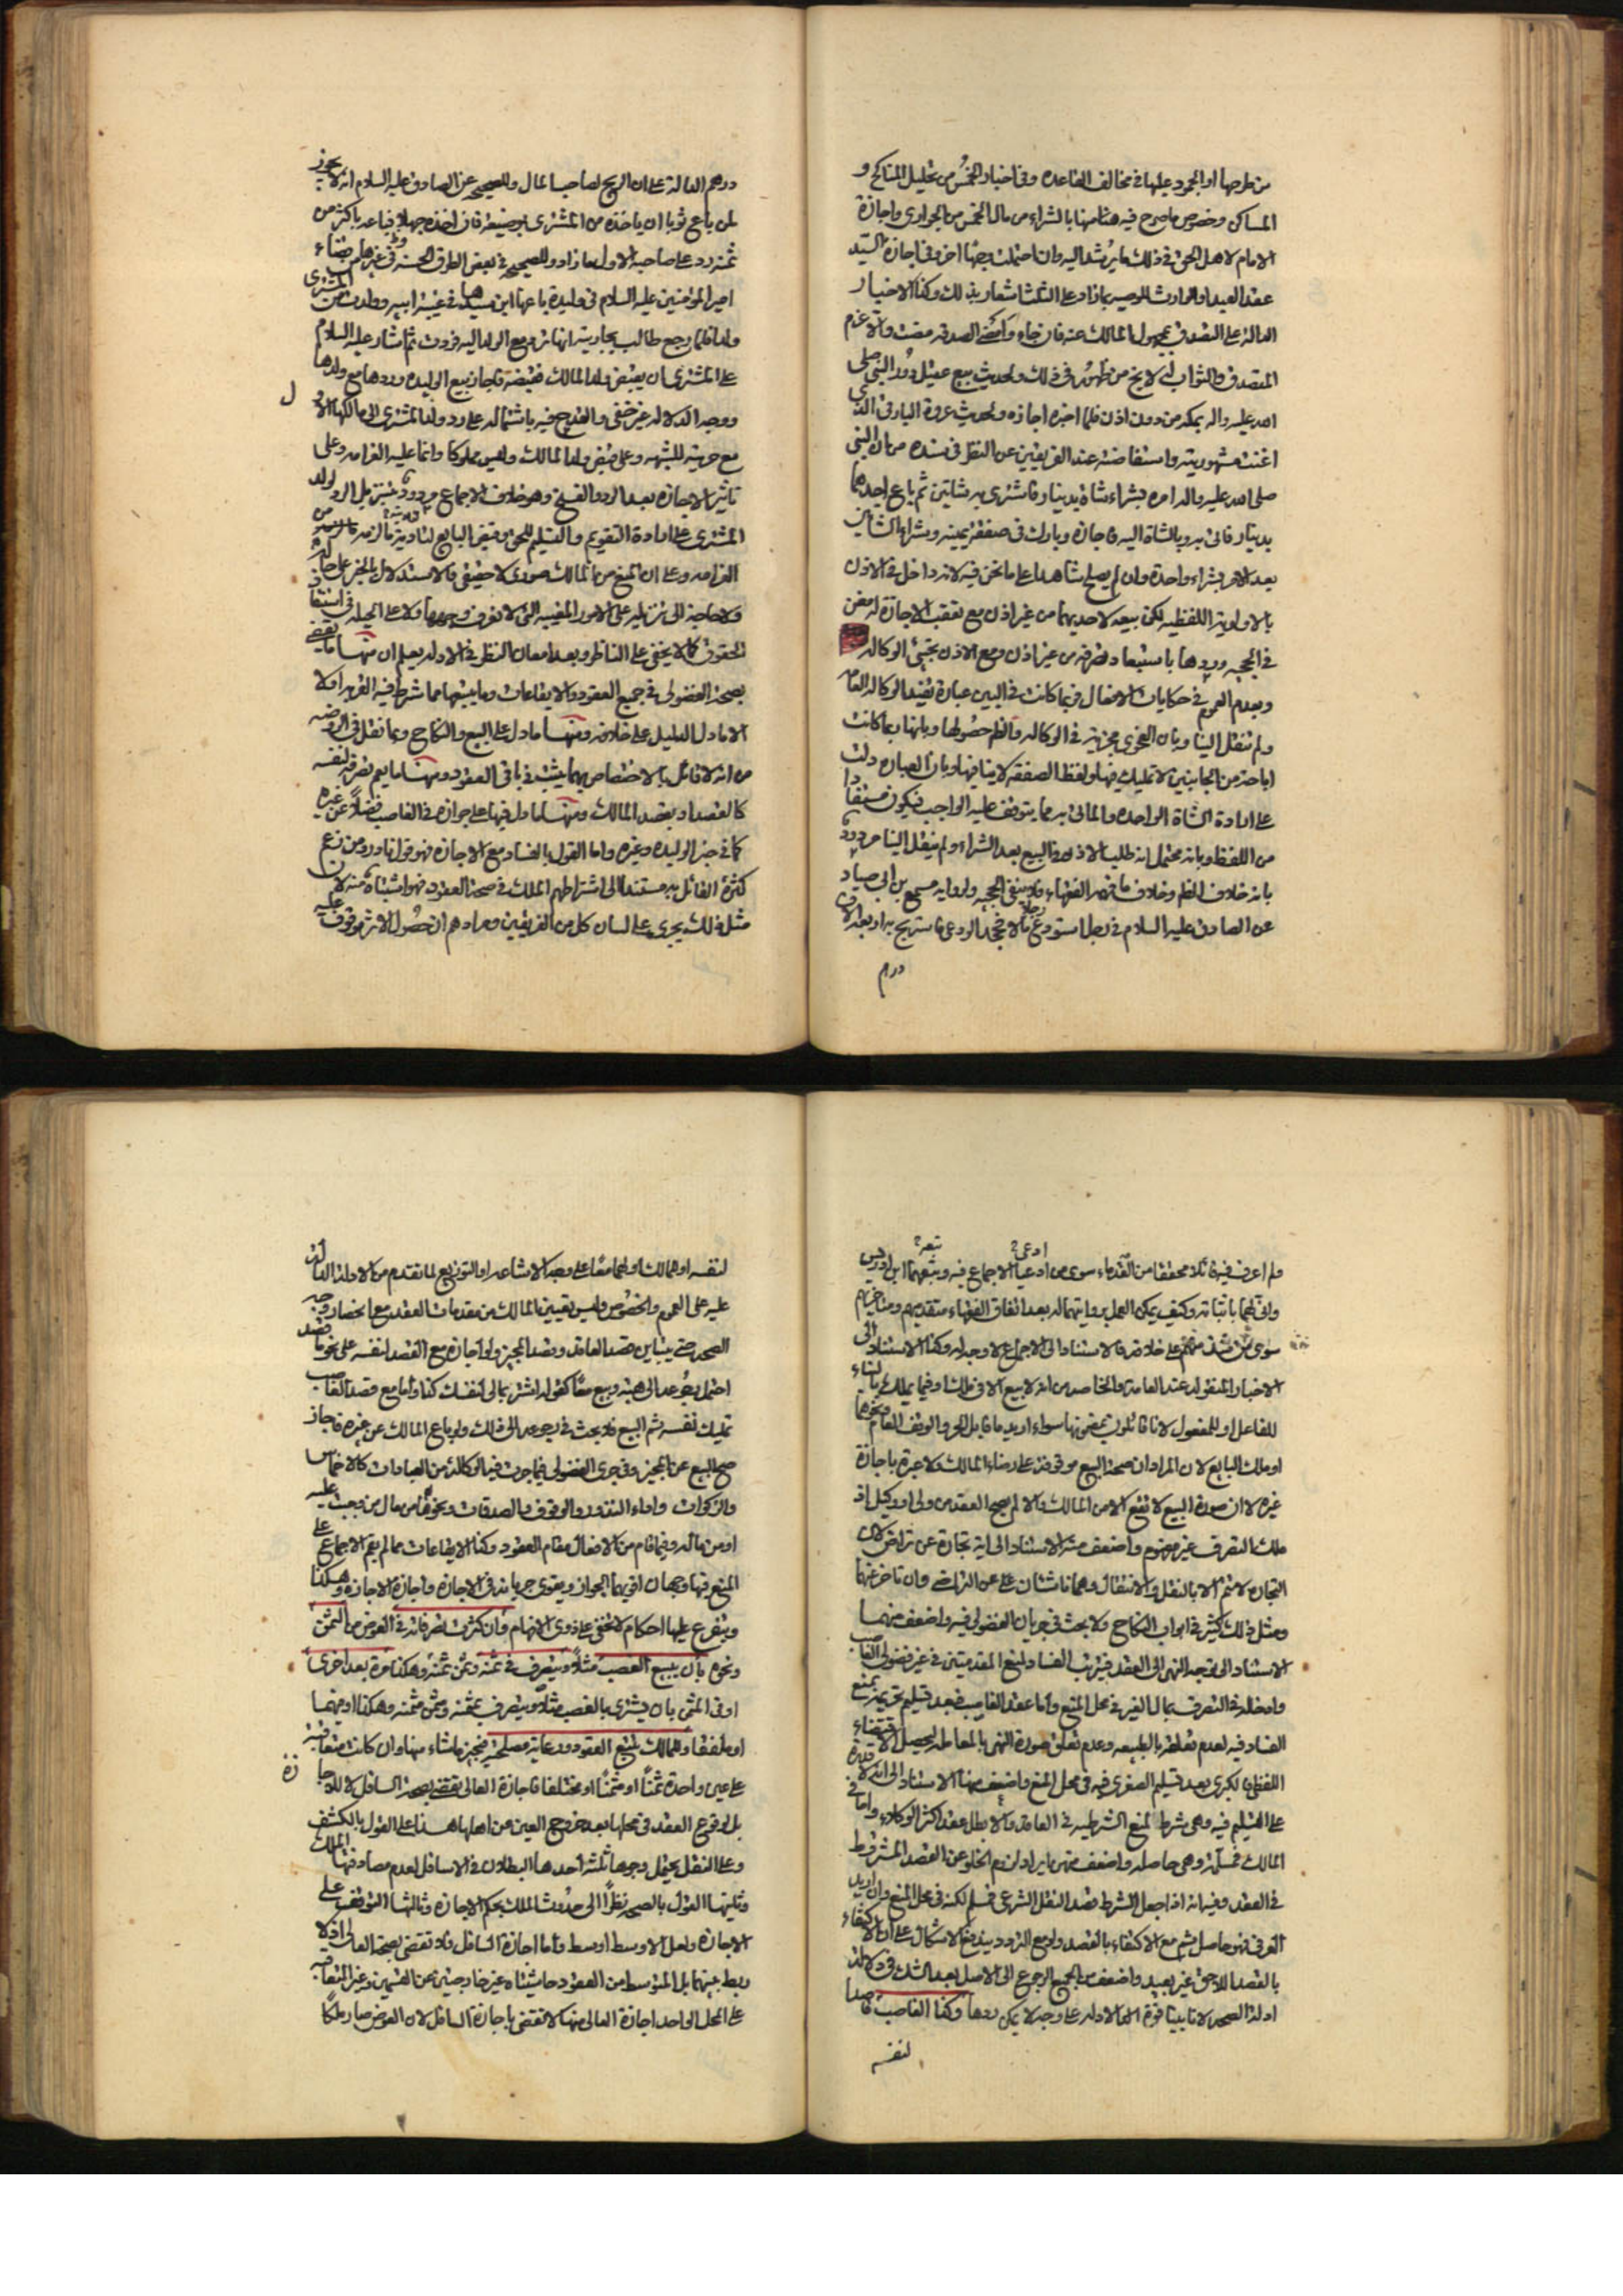 من طرحها او الجمود عليها في مخالف القاعده وفي اخبار الخمس من تحليل المناكح و
المساكن وخصوص ما صرح فيه هنا منها بالشراء من مال الخمس من الجواري واجازة
الامام لاهل الحق في ذلك ما يرشد اليه وان احتملت وجها اخر وفي اجازة السيد
عقد العبد والوارث للوصيه بما زاد على الثلث اشعار بذلك وكذا الاخبار
الداله على التصدق بمجهول المالك عنه فان جاء وامضى الصدقه مضت والا غرم
المتصدق والثواب له لا يخ من ظهور في ذلك ولحديث بيع عقيل دور النبي صلى
الله عليه واله بمكه من دون اذن فلما اخبره اجازه ولحديث عروة البارقي الذي
اغنت مشهوريته واستفاضته عند الفريقين عن النظر في سنده من ان النبي
صلى الله عليه واله امره بشراء شاة بدينار فاشترى به شاتين ثم باع احدهما
بدينار فاتى به وبالشاة اليه فاجازه وبارك في صفقة يمينه وشراء الشاتين
بعد الامر بشراء واحدة وان لم يصلح شاهدا على ما نحن فيه لانه داخل في الاذن
بالاولوية اللفظيه لكن بيعه لاحديهما من غير اذن مع تعقب الاجازة له مغن
في الحجيه وردها باستبعاد تصرفه من غير اذن ومع الاذن تجيئ الوكاله
وبعدم العموم في حكايات الافعال فربما كانت في البين عبارة تفيد الوكاله العامه
ولم تنقل الينا وبان الفحوى مجزية في الوكاله والظم حصولها وبانها ربما كانت
اباحة من الجانبين لا تمليك فيها ولفظ الصفقه لا ينافيها وبان العباره دلت
على ارادة الشاة الواحده والماتى به مما يتوقف عليه الواجب فيكون مستفادا
من اللفظ وبانه محتمل انه طلب الاذن في البيع بعد الشراء ولم ينقل الينا مردود
بانه خلاف الظم وخلاف ما فهمه الفقهاء فلا ينفي الحجيه ولروايه مسمع بن ابي سيار
عن الصادق عليه السلام في رجل استودع رجلا مالا فجحد الودعي فاستربح به اربعة الاف
درهم
درهم الدالة على ان الربح لصاحب المال وللصحيح عن الصادق عليه السلام انه لا يجوز
لمن باع ثوبا ان ياخذه من المشتري بوضيعة فان اخذه جهلا فباعه باكثر من
ثمنه رد على صاحبه الاول ما زاد وللصحيح في بعض الطرق الحسنه في غيرها من قضاء
امير المؤمنين عليه السلام في وليدة باعها ابن سيدها في غيبة ابيه وولدت من المشتري
ولدا فلما رجع طالب بجاريته انها تردمع الولد اليه فردت ثم اشار عليه السلام
على المشتري ان يقبض ولد المالك فقبضه فاجاز بيع الوليده وردها مع ولدها
ل
ووجه الدلاله غير خفي والقدح فيه باشتماله على رد ولد المشتري الى مالكها الاول
مع حريته للشبهه وعلى قبض ولد المالك وليس مملوكا وانما عليه الغرامه وعلى
تاثير الاجازه بعد الرد والفسخ وهو خلاف الاجماع مردود بتنزيل الرد لولد
المشتري على ارادة التقويم والتسليم للحق وقبض البايع لتادية ما لزمه من
الغرامه وعلى ان المنع من المالك صوري لا حقيقي فالاستدلال بالخبر على حاله
ولا حاجة الى تنزيله على الامور المغيبه التي لا نعرف وجهها ولا على الحيله في استنقاذ
الحقوق كما لا يخفى على الناظر وبعد امعان النظر في الادله يعلم ان منها ما يقضي
بصحة الفضولى في جميع العقود والايقاعات وما يتبعها مما شرط فيه القربه او لا
الا ما دل الدليل على خلافه ومنها ما دل على البيع والنكاح وبما نقل في الروضه
من انه لا قائل بالاختصاص بهما يثبت في باقي العقود ومنها ما يعم تصرفه لنفسه
كالقصد او بقصد المالك ومنها ما دل فيها على جوازه في الغاصب فضلا عن غيره
كما في خبر الوليده وغيره واما القول بالفساد مع الاجازه فهو قول نادر ومن زعم
كثرة القائل به مستندا الى اشتراطهم الملك في صحة العقود فهو اشتباه منه لان
مثل ذلك يجري على لسان كل من الفريقين ومرادهم ان حصول الاثر موقوف عليه
ادعى؟ تبعه؟
ولم اعرف فيه قائلا محققا من القدماء سوى من ادعيا الاجماع فيه وتبعهما ابن ادريس
وانى لهما باثباته وكيف يمكن العمل بروايتهما له بعد اتفاق الفقهاء متقدميهم ومتاخريهم
سوى من شذ منهم على خلافه فالاستناد الى الاجماع لا وجه له وكذا الاستناد الى
الاخبار المنقوله عند العامة والخاصه من انه لا بيع الا في ملك او فيما يملك بالبناء
للفاعل او للمفعول لانا قائلون بمضمونها سواء اريد ما قابل الحر والوقف العام ونحوهما
او ملك البايع لان المراد ان صحة البيع موقوفة على رضاء المالك ولا عبرة باجازة
غيره لا ان صورة البيع لا تقع الا من المالك والا لم يصح العقد من ولى او وكيل اذ
ملك التصرف غير مفهوم واضعف منه الاستناد الى اية تجارة عن تراض لان
التجاره لا تتم الا بالنقل والانتقال وهما ناشئان عن التراضي وان تاخر عنهما
ومثل ذلك كثير في ابواب النكاح ولا بحث في جريان الفضولي فيه واضعف منهما
الاستناد الى توجه النهي الى العقد فيترتب الفساد لمنع المقدمتين في غير فضولي الغاصب
وادخاله في التصرف بمال الغير في محل المنع واما عقد الغاصب فبعد تسليم تحريمه نمنع
الفساد فيه لعدم تعلقه بالطبيعه وعدم تعلق صورة النهي بالمعامله ليحصل الاقتضاء
اللفظي فالكبرى بعد تسليم الصغرى فيه في محل المنع واضعف منها الاستناد الى انه لا قدرة
على التسليم فيه وهي شرط لمنع الشرطيه في العاقد والا بطل عقد اكثر الوكلاء واما في
المالك فمسلمة وهي حاصله واضعف منهن ايراد لزوم الخلو عن القصد المشروط
في العقد وفيه انه اذا جعل الشرط قصد النقل الشرعي فمسلم لكنه في محل المنع وان اريد
العرفي فهو حاصل ثم مع الاكتفاء بالقصد ولو مع التردد يندفع الاشكال على ان الاكتفاء
بالقصد اللاحق غير بعيد واضعف من الجميع الرجوع الى الاصل بعد الشك في دلالة
ادلة الصحه لانا بينا قوة تلك الادله على وجه لا يمكن ردها وكذا الغاصب قاصدا
لنفسه
لنفسه او للمالك او لهما معا على وجه الاشاعه او التوزيع لما تقدم من الادلة الدالة
عليه على العموم والخصوص وليس تعيين المالك من مقدمات العقد مع انحصار وجه
الصحه حتى يتباين قصد العاقد وقصد المجيز ولو اجازه مع القصد لنفسه على نحو ما قصد
احتمل رجوعه الى هبة وبيع معا كقوله اشتر بمالي لنفسك كذا واما مع قصد الغاصب
تمليك نفسه ثم البيع فلا بحث في رجوعه الى ذلك ولو باع المالك عن غيره فاجاز
صح البيع عن المجيز وفي جرى الفضولي فيما جرت فيه الوكالة من العبادات كالاخماس
والزكوات واداء النذور والوقوف والصدقات ونحوها من مال من وجبت عليه
او من ماله وفيما قام من الافعال مقام العقود وكذا الايقاعات مما لم يقم الاجماع على
المنع فيها وجهان اقويهما الجواز ويقوى جريانه في الاجازه واجازة الاجازه وهكذا
ويتفرع عليها احكام لا تخفى على ذوى الافهام وان كثرت تصرفاته في العوض من الثمن
ونحوه بان يبيع الغصب مثلا ويتصرف في ثمنه وثمن ثمنه وهكذا مرة بعد اخرى
او في المثمن بان يشتري بالغصب مثلا ويتصرف بمثمنه ومثمن مثمنه وهكذا او منهما
او ملفقا وللمالك تتبع العقود ورعاية مصلحته فيجيز ما شاء منها وان كانت متعاقبة
على عين واحدة ثمنا او مثمنا او مختلفا فاجازة العالي تقتضي بصحة السافل لا للاجازة
بل لوقوع العقد في محلها بعد خروج العين من اصلها هذا على القول بالكشف
وعلى النقل يحتمل وجوها ثلثة احدها البطلان في الاسافل لعدم مصادفتها الملك
وثانيها القول بالصحه نظرا الى حدوث الملك بحكم الاجازه وثالثها التوقف على
الاجازه ولعل الاوسط اوسط واما اجازة السافل فلا تقتضي بصحة العالي اذ لا
ربط بينهما بل المتوسط من العقود حاشيتاه غير خارجتين عن القسمين وغير المتعاقبه
على المحل الواحد اجازة العالى منها لا تقتضي باجازة السافل لان العوض صار ملكا